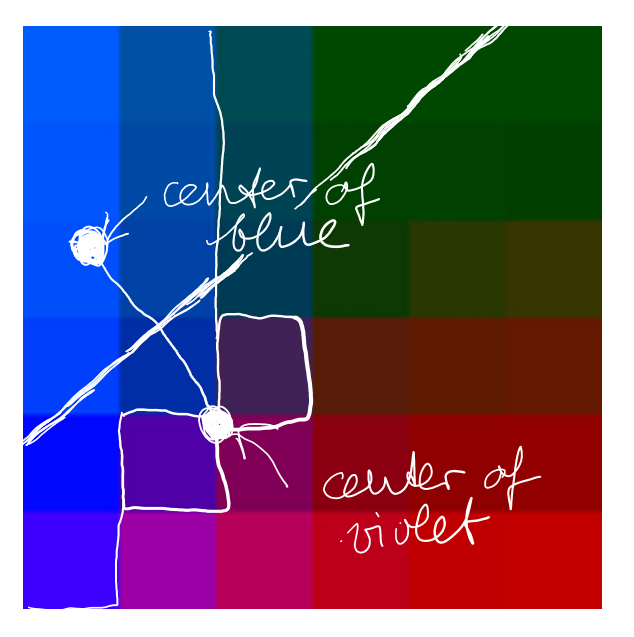 center of
blue
center of
violet